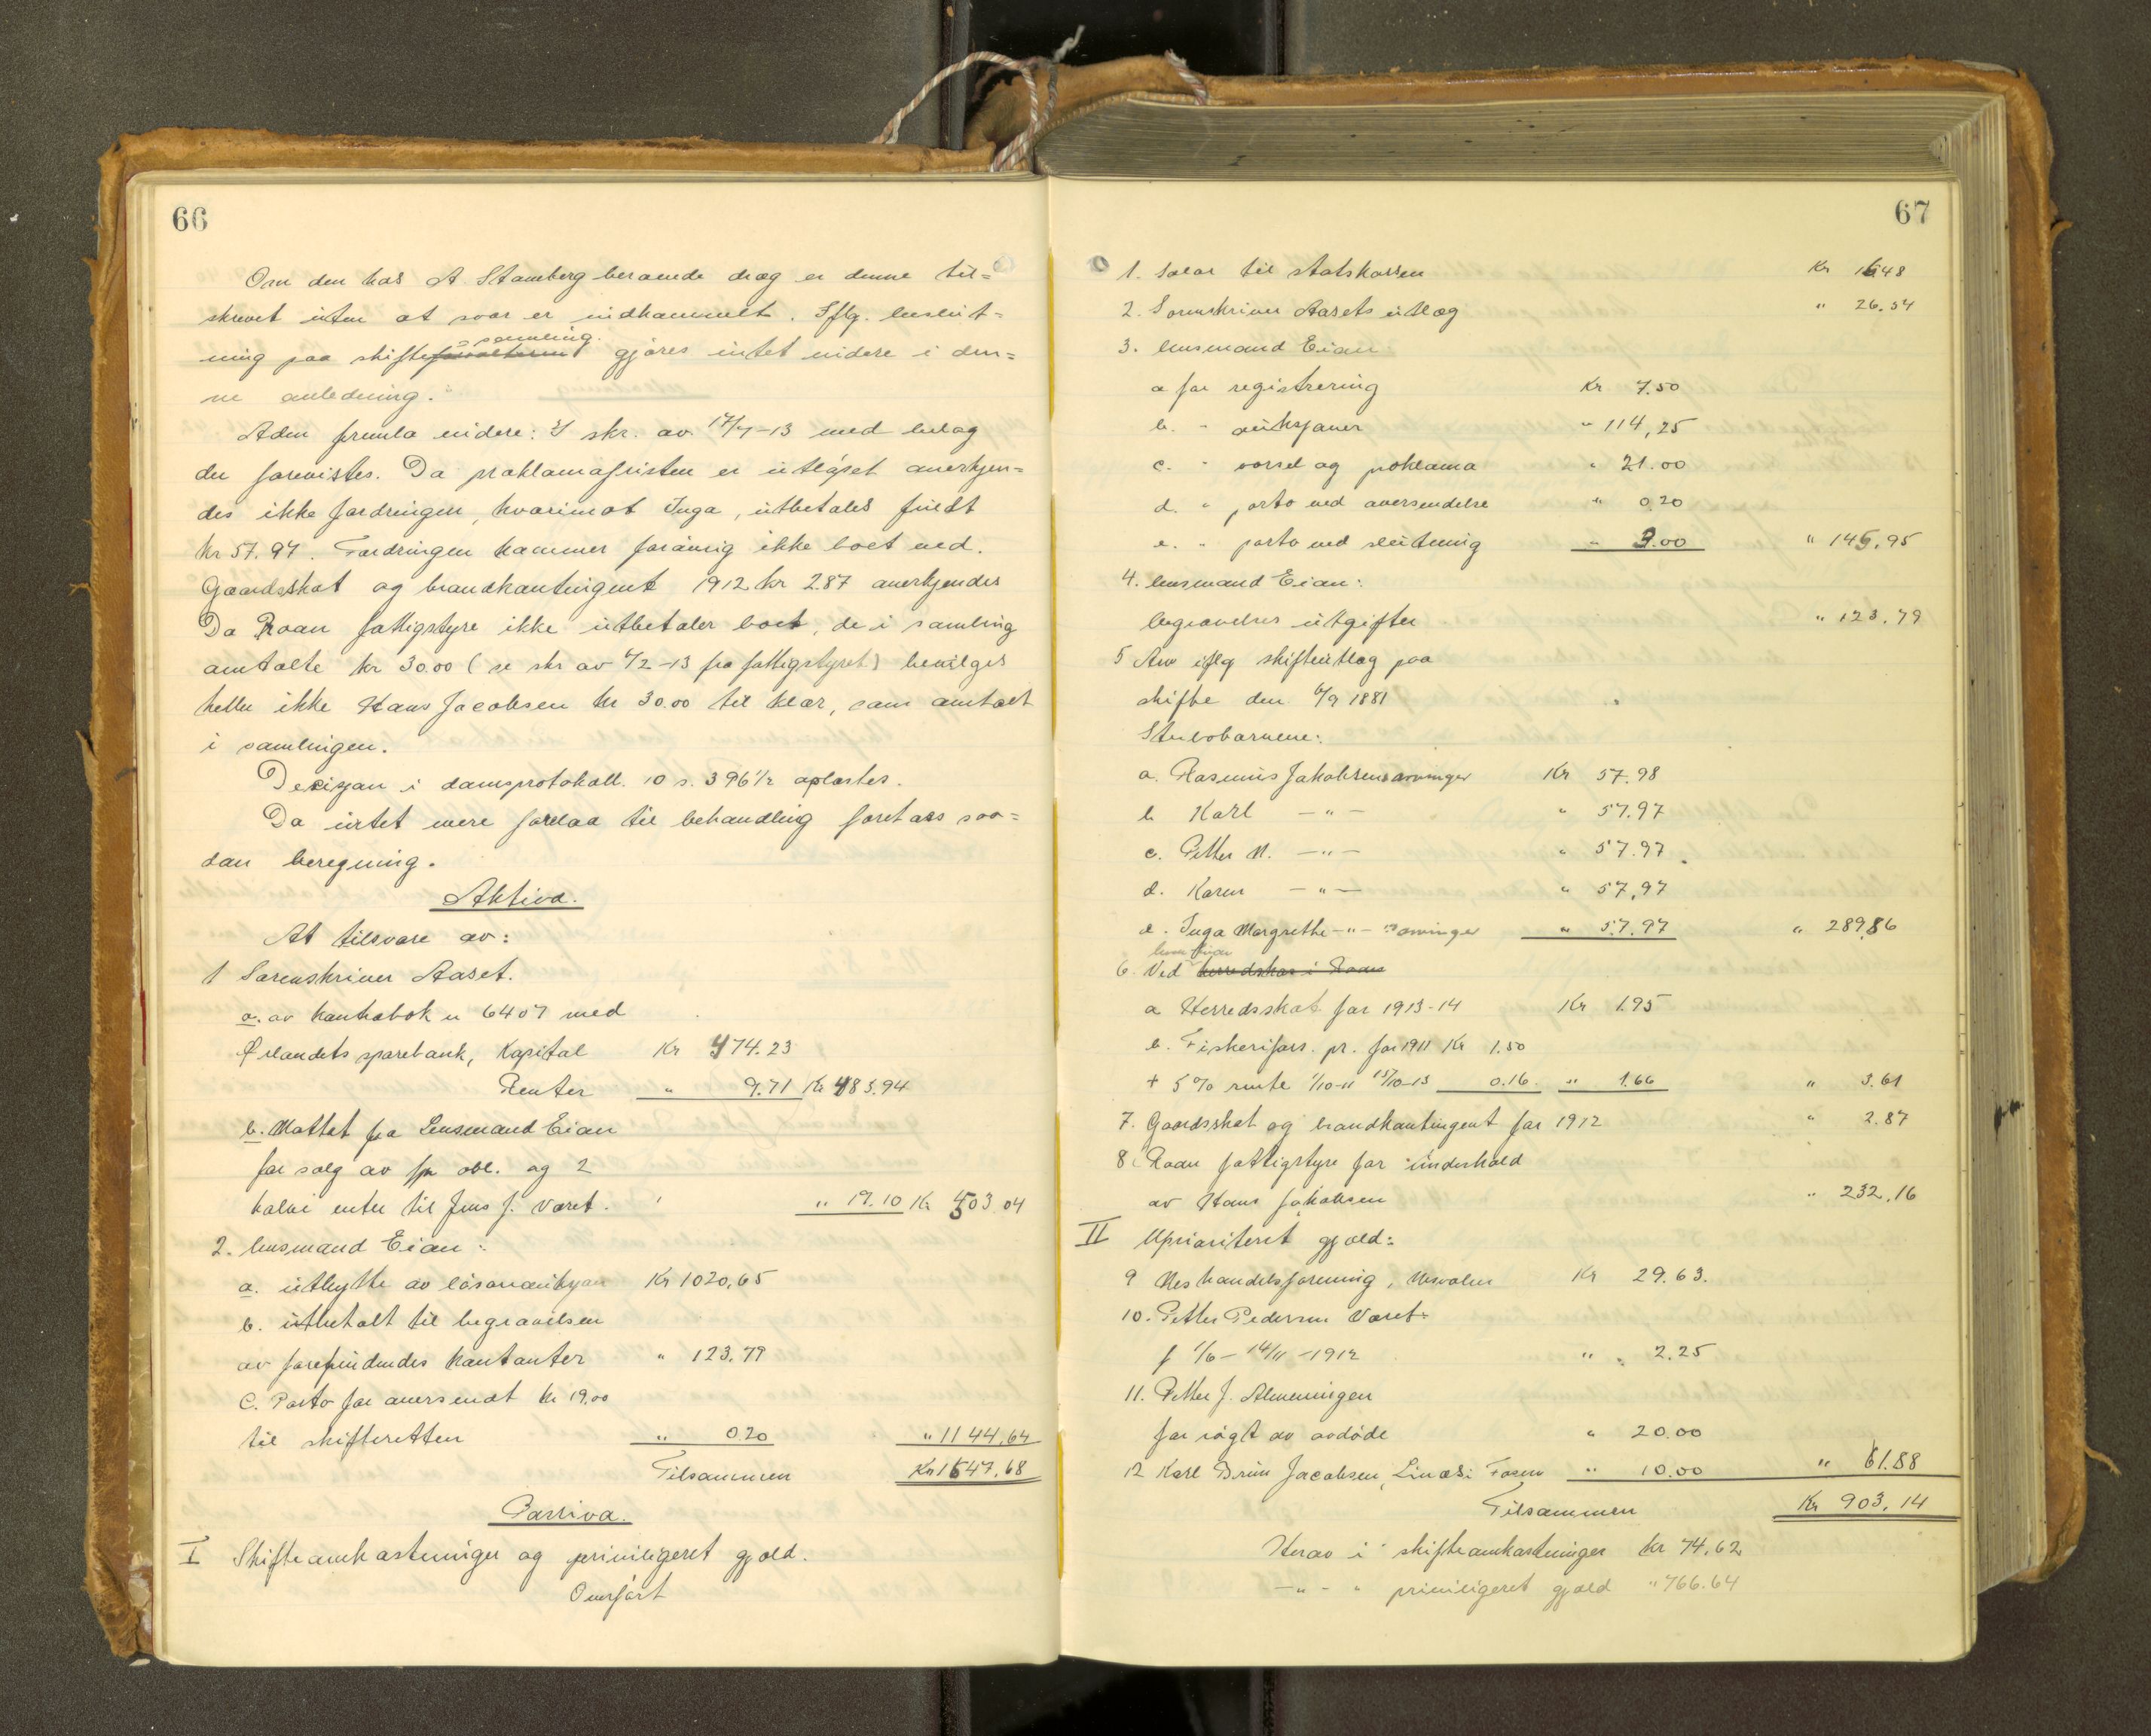 66
Om den hos A. Stamberg beroende drog er denne til=
skrevet uten at svar er indkommet. Iflg. beslut=
samling
ning paa skifte gjøres intet videre i den=
ne anledning.
Adm fremla videre: 1/ skr. av 17/7-13 med bilag
der forevistes. Da proklamafristen er utløpet anerkjen=
des ikke fordringen, hvorimot Inga, utbetales fuldt
kr 57.97. Fordringen kommer forøvrig ikke boet ved.
Gaardsskat og brandkontingent 1912 kr 2.87 anerkjendes
Da Roan fattigstyre ikke utbetaler boet, de i samling
omtalte kr 30.00 (se skr av 4/2-13 fra fattigstyret) bevilges
heller ikke Hans Jacobsen kr 30.00 til klær, som omtalt
i samlingen.
Decisjon i domsprotokoll 10 s. 396 1/2 oplæstes.
Da intet mere forelaa til behandling foretoes saa=
dan beregning.
Aktiva.
At tilsvare av:
1 Sorenskriver Aaset.
a. av kontrabok n 6407 med
Ørlandets sparebank, Kapital Kr 474.23
Renter " 9.71 Kr 483.94
b. Mottat fra Lensmand Eian
for salg av obl. og 2
halve enter til Jens J. Været. " 19.10 Kr 503.04
2. lensmand Eian:
a. utbytte av løsøreauksjon Kr 1020,65
b. utbetalt til begravelsen
av forefindendes kontanter " 123.79
C. Porto for oversendt kr 19,00
til skifteretten " 0.20 " 1144,64
Tilsammen Kr 1647,68
Passiva.
I Skifteomkostninger og priviligeret gjæld.
Overført
67
1. Salær til statskassen Kr 1648
2. Sorenskriver Aasets utlæg " 26.54
3. lensmand Eian
a for registrering Kr 7.50
b. " auksjoner " 114,25
c. " varsel og proklama " 21.00
d. " porto ved oversendelse " 0.20
e. " porto ved slutning " 3.00 " 145,95
4. lensmand Eian:
begravelses utgifter " 123.79
5 Arv iflg skifteutlæg paa
skifte den 6/9 1881
Stervbobarnene:
a. Rasmus Jakobsens arvinger Kr 57.98
b Karl -"- " 57.97
c. Petter N. -"- " 57.97
d. Karen -"- " 57,97
e. Inga Margrethe -"- arvinger " 57.97 " 289,86
lensm Eian
6. Ved herredskas i Roan
a Herredsskat for 1913-14 Kr 1.95
b. Fiskerifors. pr. for 1911 Kr 1.50
+ 5% rente 1/10-11 15/10-13 0.16. " 1.66 " 3.61
7. Gaardsskat og brandkontingent for 1912 " 2.87
8 Roan fattigstyre for underhold
av Hans Jakobsen " 232,16
II Uprioritert gjæld:
9 Nes handelsforening, Nesvalen Kr 29.63.
10. Petter Pedersen Været
f 1/6 - 14/11 - 1912 " 2.25
11. Petter J. Almenningen
for røgt av avdøde " 20.00
12 Karl Brun Jacobsen, Linæs i Fosen " 10.00 " 61.88
Tilsammen Kr 903,14
Herav i skifteomkostninger kr 74.62
-"- " priviligeret gjæld " 766.64